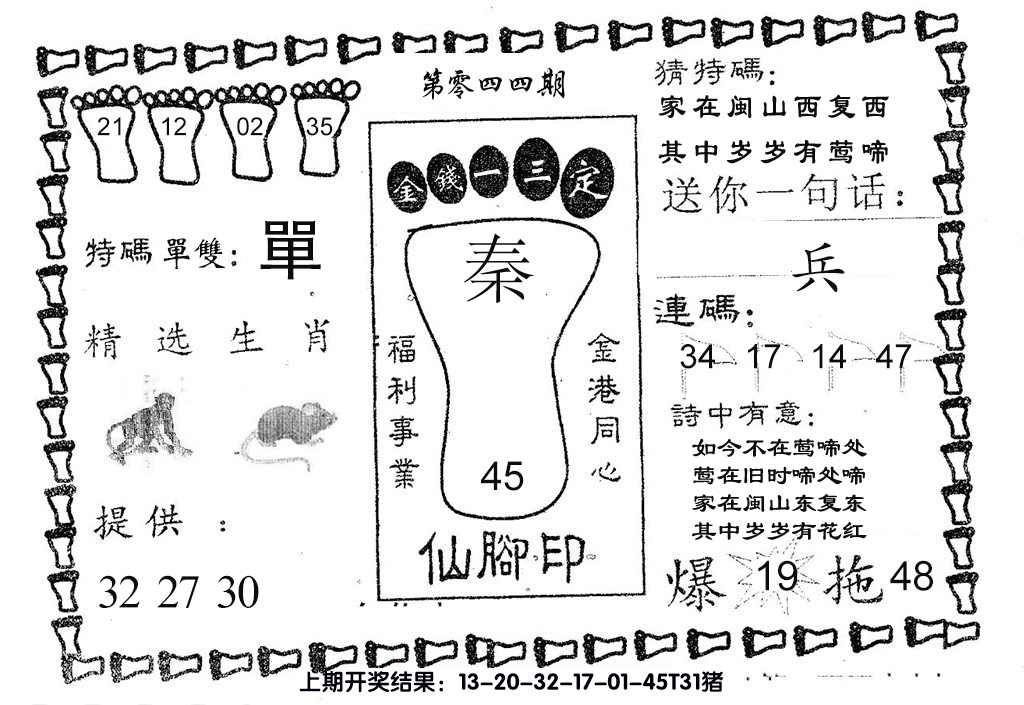 第零四四期
21 12 02 35
特碼單雙：單
精选生肖
提供：
32 27 30
金錢一三定
秦
福利事業
金港同心
45
仙腳印
猜特碼：
家在闽山西复西
其中岁岁有莺啼
送你一句话：
兵
連碼：
34 17 14 47
詩中有意：
如今不在莺啼处
莺在旧时啼处啼
家在闽山东复东
其中岁岁有花红
爆 19 拖 48
上期开奖结果：13-20-32-17-01-45T31猪